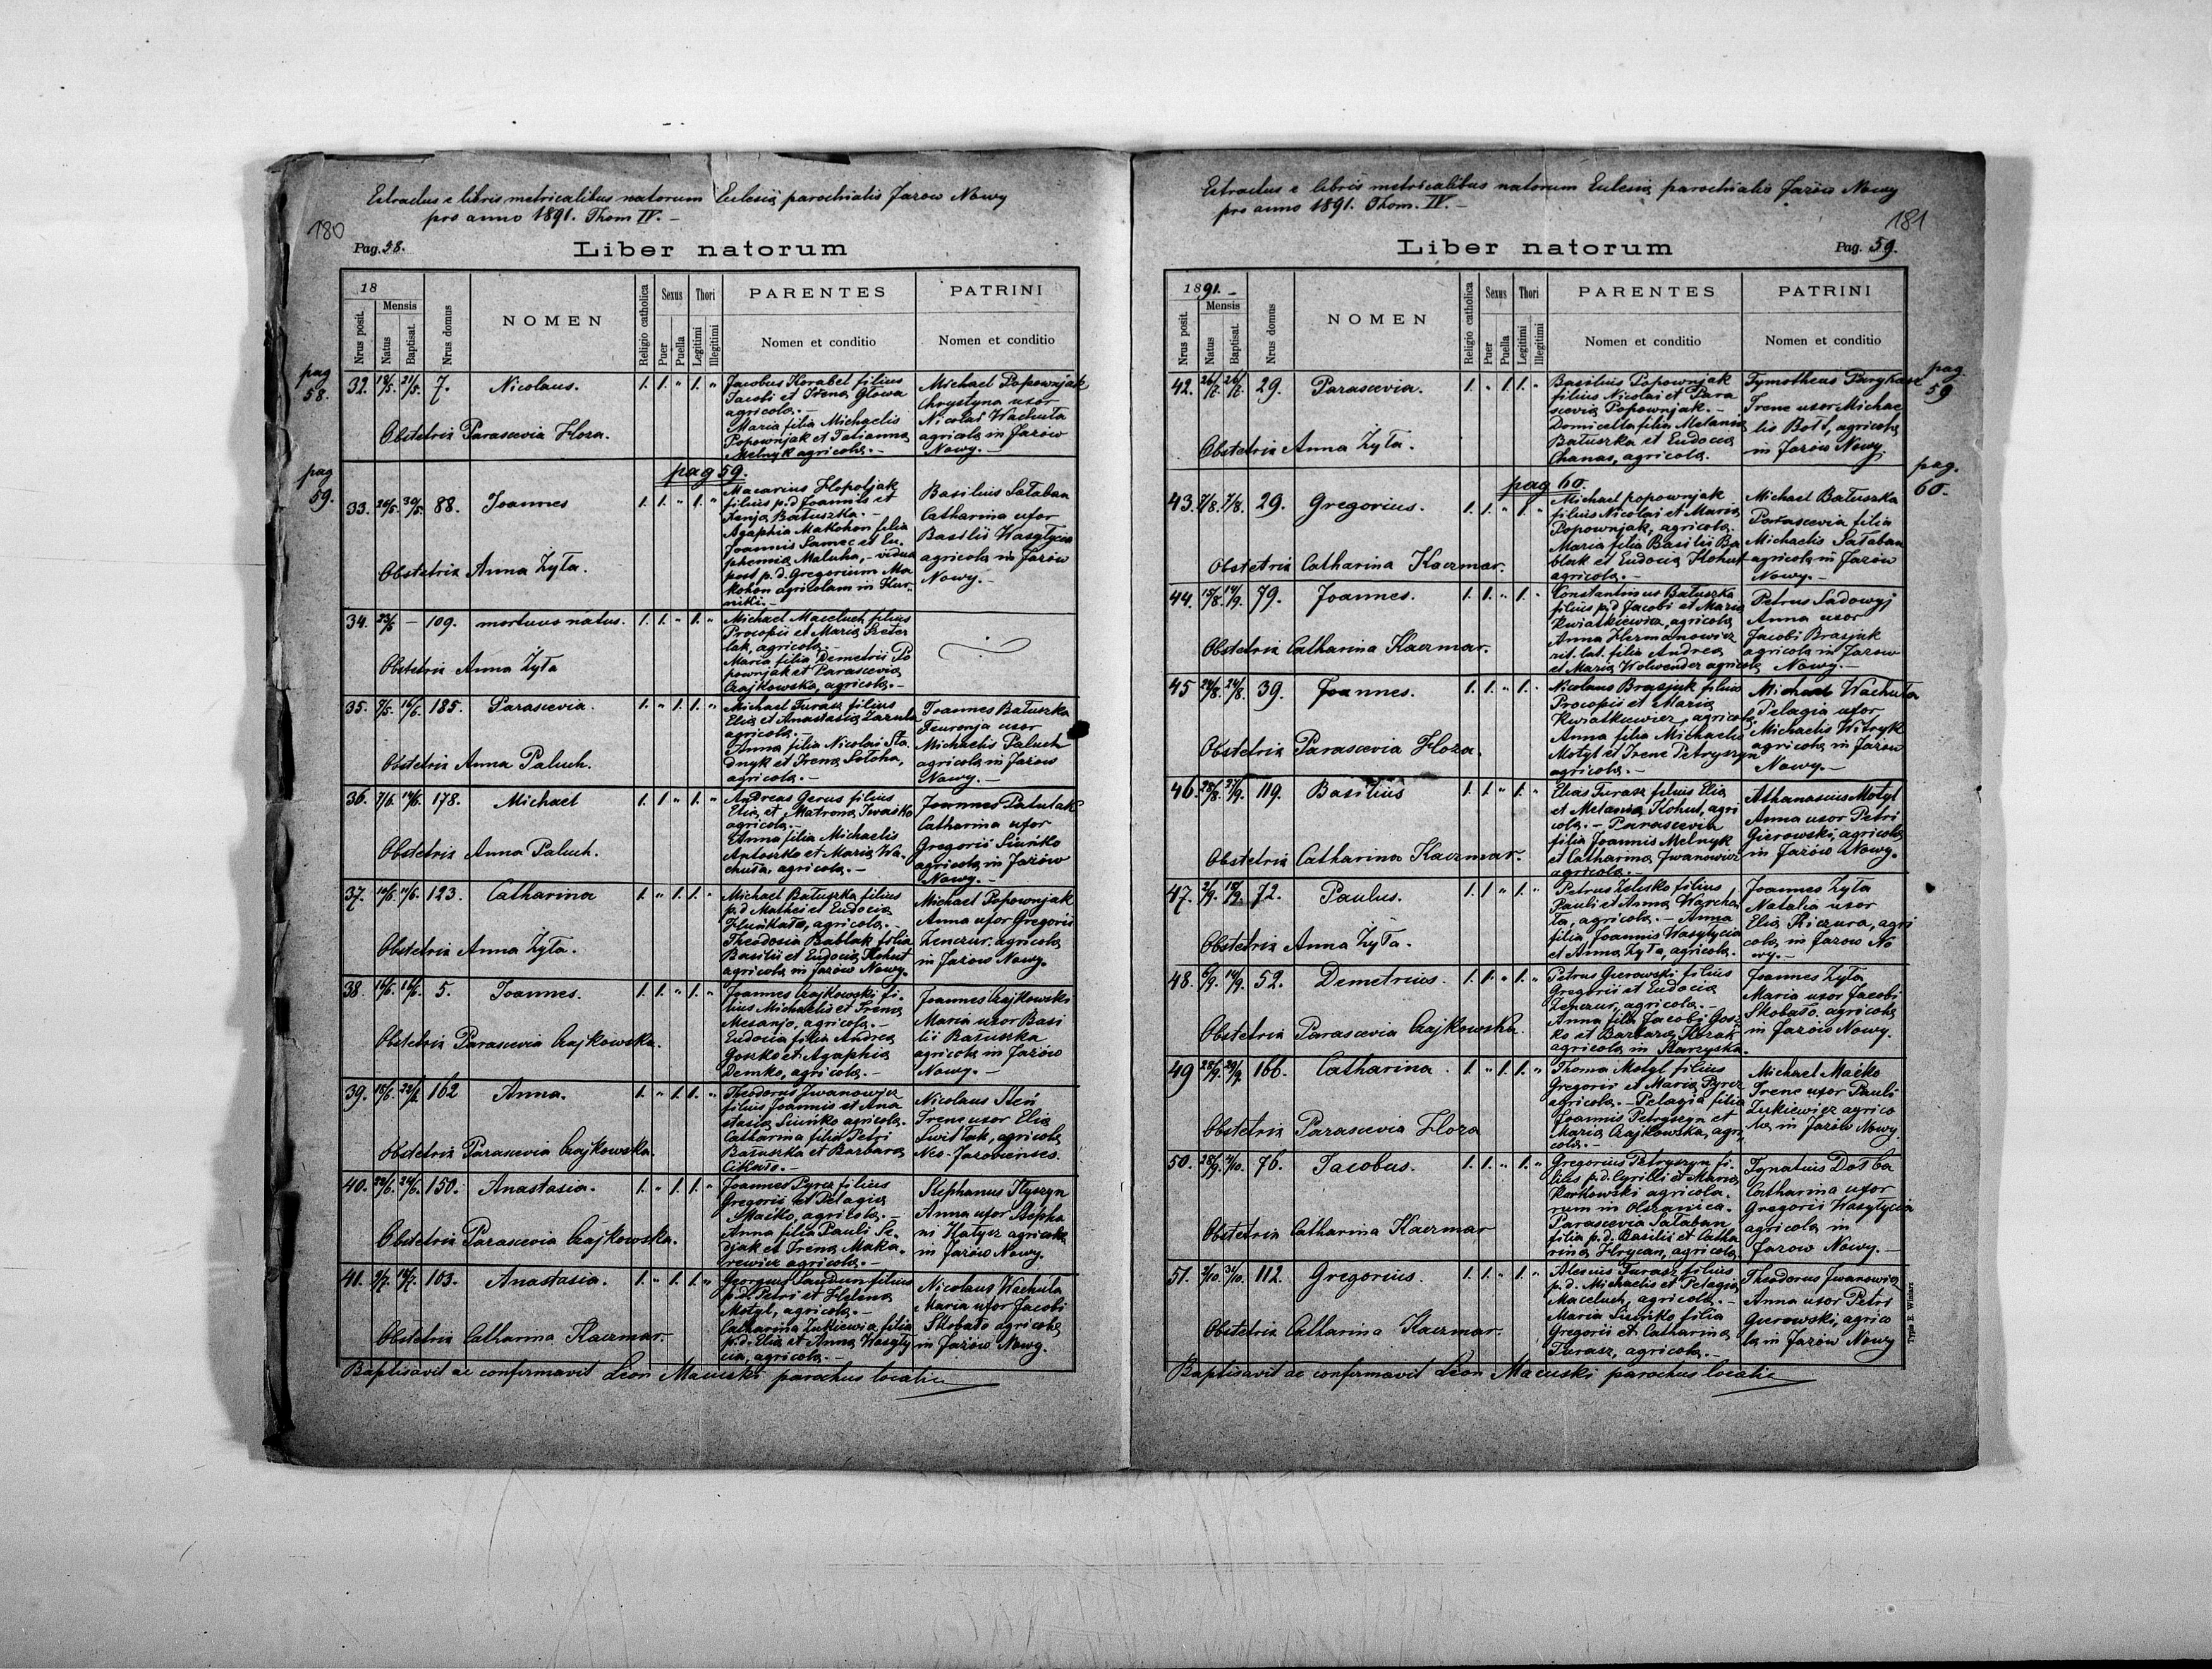 Extractus e libris metricalibus natorum Eclesiæ parochialis Jazow Nowy
pro anno 1891. Thom IV. -
180
Pag. 58.
Liber natorum
18
Nrus posit.
Mensis
Natus
Baptisat.
Nrus domus
NOMEN
Religio catholica
Sexus
Puer
Puella
Thori
Legitimi
Illegitimi
PARENTES
Nomen et conditio
PATRINI
Nomen et conditio
pag
58.
32. 19/5. 21/5. 7. Nicolaus. 1. 1. " 1. "
Obstetrix Parascevia Hoza.
Jacobus Korabel filius
Jacobi et Irena Głowa
agricola. -
Maria filia Michaelis
Popownjak et Tatianna
Melnyk agricola. -
Michael Popownjak
Chrystyna uxor
Nicolai Wachuła
agricola in Jazów
Nowy. -
pag
59.
pag 59.
33. 88. Joannes 1. 1. " 1. "
Obstetrix Anna Zyła.
Macarius Hopoljak
filius p.d Joannis et
Xenja Bałuszka. -
Agaphia Makohon filia
Joannis Samec et Eu.
phemia Maluha, - vidua
post p. d. Gregorium Ma
kohon agricolam in Hur-
niki. -
Basilius Sałaban
Catharina uxor
Basilii Wasylycia
agricola in Jazów
Nowy. -
34. 23/5 - 109. mortuus natus. 1. 1. " 1. "
Obstetrix Anna Zyła
Michael Maceluch filius
Procopii et Maria
lak, agricola. -
Maria filia Demetrii Po
pownjak et Parascevia
Czajkowska, agricola. -
35. 185. Parascevia. 1. " 1. 1. "
Obstetrix Anna Paluch.
Michael Turasz filius
Elia et Anastasia
agricola. -
Anna filia Nicolai Sta.
dnyk et Irena Soloha,
agricola. -
Joannes Bałuszka
Feuronja uxor
Michaelis Paluch
agricola in Jazow
Nowy. -
36. 7/6. 14/6. 178. Michael 1. 1. " 1. "
Obstetrix Anna Paluch.
Andreas Gerus filius
Elia et Matrona Iwasko
agricola. -
Anna filia Michaelis
Antoszko et Maria Wa.
chuła, agricola. -
Joannes
Catharina uxor
Gregorii Siuńko
agricola in Jazów
Nowy. -
37. 123. Catharina 1. " 1. 1. "
Obstetrix Anna Zyła.
Michael Bałuszka filius
p.d Mathei et Eudocia
agricola. -
Theodosia Bablak filia
Basilii et Eudocia Kohut
agricola in Jazów Nowy.
Michael Popownjak
Anna uxor Gregorii
Zenczur. agricola
in Jazow Nowy.
38. 16/6. 16/6. 5. Joannes. 1. 1. " 1. "
Obstetrix Parascevia Czajkowska.
Joannes Czajkowski fi.
lius Michaelis et Irena
Mesanjo, agricola. -
Eudocia filia Andrea
Goszko et Agaphia
Demko, agricola. -
Joannes Czajkowski
Maria uxor Basi
lii Bałuszka
agricola in Jazów
Nowy. -
39. 162 Anna. 1. " 1. 1. "
Obstetrix Parascevia Czajkowska.
Theodorus Jwanowicz
filius Joannis et Ana
stasia Siuńko agricola.
Catharina filia Petri
Bałuszka et Barbara
Cikało. -
Nicolaus Steń
Irene uxor Elia
Switlak, agricola
Neo-Jazovienses.
40. 150. Anastasia. 1. " 1. 1. "
Obstetrix Parascevia Czajkowska.
Joannes Pyrcz filius
Gregorii et Pelagia
Maćko, agricola. -
Anna filia Pauli Se.
djak et Irena Maka.
rewicz agricola. -
Stephanus Kyszyn
Anna uxor Stepha
ni Hatycz agricola
in Jazów Nowy.
41. 103. Anastasia. 1. " 1. 1. "
Obstetrix Catharina Kaczmar.
Georgius filius
p.d. Petri et Helena
Motyl, agricola. -
Catharina Zukiewicz filia
p.d. Elia et Anna Wasyly
cia, agricola. -
Nicolaus Wachula
Maria uxor Jacobi
Skobało agricola
in Jazów Nowy.
Baptisavit ac confirmavit Leon Macuski parochus localis
Extractus e libris metricalibus natorum Eclesiæ parochialis Jazów Nowy
pro anno 1891. Thom. IV. -
181
Liber natorum
Pag. 59.
1891. -
Nrus posit.
Mensis
Natus
Baptisat.
Nrus domus
NOMEN
Religio catholica
Sexus
Puer
Puella
Thori
Legitimi
Illegitimi
PARENTES
Nomen et conditio
PATRINI
Nomen et conditio
pag.
59
42. 26/7. 26/7. 29. Parascevia. 1. " 1. 1. "
Obstetrix Anna Zyła.
Basilius Popownjak
filius Nicolai et Para
scevia Popownjak. -
Domicella filia Melania
Bałuszka et Eudocia
Chanas, agricola.
Tymotheus
Irene uxor Michae
lis Bott, agricola
in Jazów Nowy.
pag.
60.
pag 60.
43. 7/8. 7/8. 29. Gregorius. 1. 1. " 1. "
Obstetrix Catharina Kaczmar.
Michael popownjak
filius Nicolai et Maria
Popownjak, agricola.
Maria filia Basilii Ba
blak et Eudocia Kohut
agricola. -
Michael Bałuszka
Parascevia filia
Michaelis Sałaban
agricola in Jazów
Nowy. -
44. 79. Joannes. 1. 1. " 1. "
Obstetrix Catharina Kaczmar.
Constantinus Bałuszka
filius p.d Jacobi et Maria
Kwiatkiewicz, agricola
Anna Hermanowicz
rit. lat. filia Andrea
et Maria Wolwender agricola
Petrus Sadowyj
Anna uxor
Jacobi Brasjak
agricola in Jazow
Nowy. -
45 24/8. 24/8. 39. Joannes. 1. 1. " 1. "
Obstetrix Parascevia Hoza.
Nicolaus Brasjuk filius
Procopii et Maria
Kwiatkiewicz, agricola,
Anna filia Michaelis
Motyl et Irene Petryszyn
agricola. -
Michael Wachuła
Pelagia uxor
Michaelis Witryk
agricola in Jazów
Nowy. -
46. 119. Basilius 1. 1. " 1. "
Obstetrix Catharina Kaczmar.
Elias Turasz filius Elia
et Melania Kohut, agri
cola. - Parascevia
filia Joannis Melnyk
et Catharina Jwanowicz
agricola. -
Athanasius Motyl
Anna uxor Petri
Gierowski, agricola
in Jazów Nowy.
47. 72. Paulus. 1. 1. " 1. "
Obstetrix Anna Zyła.
Petrus Zelisko filius
Pauli et Anna Warcha
ła, agricola. - Anna
filia Joannis Wasylycia
et Anna Zyła, agricola.
Joannes Zyła
Natalia uxor
Elia Kiczura, agri
cola, in Jazow No
wy. -
48. 52. Demetrius. 1. 1. " 1. "
Obstetrix Parascevia Czajkowska.
Petrus Gierowski filius
Gregorii et Eudocia
Zenczur, agricola. -
Anna filia Jacobi Gosz
ko et Barbara Kozak
agricola in Starzyska.
Joannes Zyła
Maria uxor Jacobi
Skobało. agricola
in Jazów Nowy.
49 166. Catharina. 1. " 1. 1. "
Obstetrix Parascevia Hoza
Thoma Motyl filius
Gregorii et Maria Pyrcz
agricola. - Pelagia filia
Joannis Petryszyn et
Maria Czajkowska, agri,
cola. -
Michael Maćko
Irene uxor Pauli
Zukiewicz agrico
la in Jazów Nowy.
50. 76. Jacobus. 1. 1. " 1. "
Obstetrix Catharina Kaczmar
Gregorius Petryszyn fi.
lius p.d. Cyrilli et Maria
Karkowski agricola.
rum in Olszanica.
Parascevia Sałaban
filia p.d. Basilii et Catha
rina Hrycan, agricola.
Ignatius Dołba
Catharina uxor
Gregorii Wasylycia
agricola in
Jazow Nowy. -
51. 112. Gregorius. 1. 1. " 1. "
Obstetrix Catharina Kaczmar.
Alexius Turasz filius
p.d. Michaelis et Pelagia
Maceluch, agricola. -
Maria Siuńko filia
Gregorii et Catharina
Turasz, agricola. -
Theodorus Jwanowicz
Anna uxor Petri
Gierowski, agrico
la in Jazów Nowy
Typis E. Winiarz
Baptisavit ac confirmavit Leon Macuski parochus localis